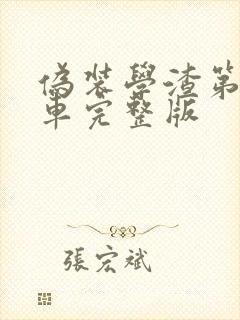 偽裝學渣第
車完整版
張宏斌